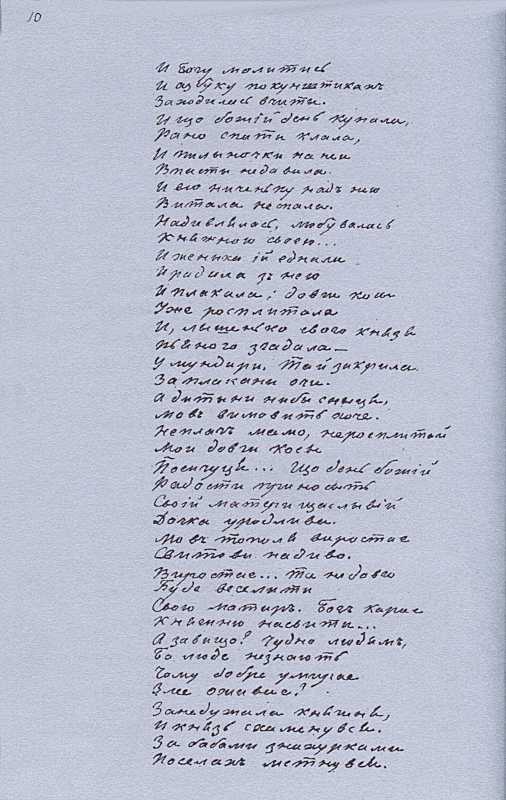 10
И Богу молитись
И азбуку по кунштиках
Заходилась вчити.
И що божій день купала,
Рано спати клала,
И пилыночки на неи
Впасти недавала.
И всю ниченьку надъ нею
Витала неспала.
Надивлялась, любувалась
Княжною своею...
И жениха ій еднали
И радила зъ нею
И плакала; довги коси
Уже росплитала
И, лышенько свого князя
Пьяного згадала —
У мундири. Та й закрила
Заплакани очи.
А дитыни ниби сныця,
Мовъ вимовить хоче.
Неплачъ мамо, неросплитай
Мои довги коси
Посичуця... Що день божій
Радости приносыть
Своій матери щасливій
Дочка уродлива.
Мовъ тополя виростае
Свитови надиво.
Виростае... та недовго
Буде веселити
Свою матиръ. Богъ карае
Княгиню насвити...
А завищо? Чудно людямъ,
Бо люде незнають
Чому добре умирае
Злее оживае?
Занедужала княгиня,
И князь схаменувся.
За бабами знахурками
Поселахъ метнувся.